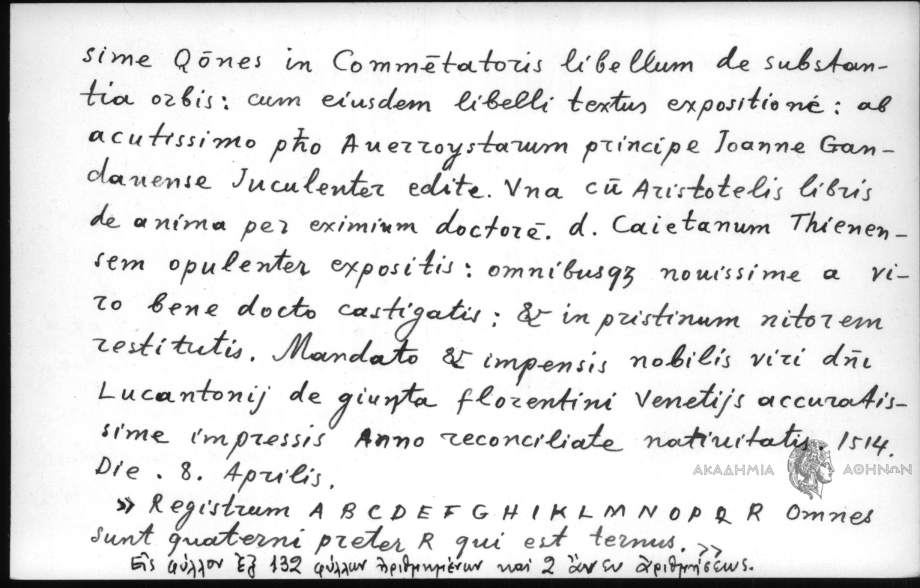 sime Qōnes in Commētatoris libellum de substan-
tia orbis: cum eiusdem libelli textus expositionē: ab
acutissimo pħo Auerroystarum principe Joanne Gan-
dauense Juculenter edite. Vna cū Aristotelis libris
de anima per eximium doctorē. d. Caietanum Thienen-
sem opulenter expositis: omnibusqꝫ nouissime a vi-
ro bene docto castigatis: & in pristinum nitorem
restitutis. Mandato & impensis nobilis viri dn̄i
Lucantonij de giunta florentini Venetijs accuratis-
sime impressis Anno reconciliate natiuitatis 1514.
ΑΚΑΔΗΜΙΑ ΑΘΗΝΩΝ
Die . 8. Aprilis.
» Registrum A B C D E F G H I K L M N O P Q R Omnes
sunt quaterni preter R qui est ternus. »
Εἰς φύλλον ἐξ 132 φύλλων ἠριθμημένων καὶ 2 ἄνευ ἀριθμήσεως.